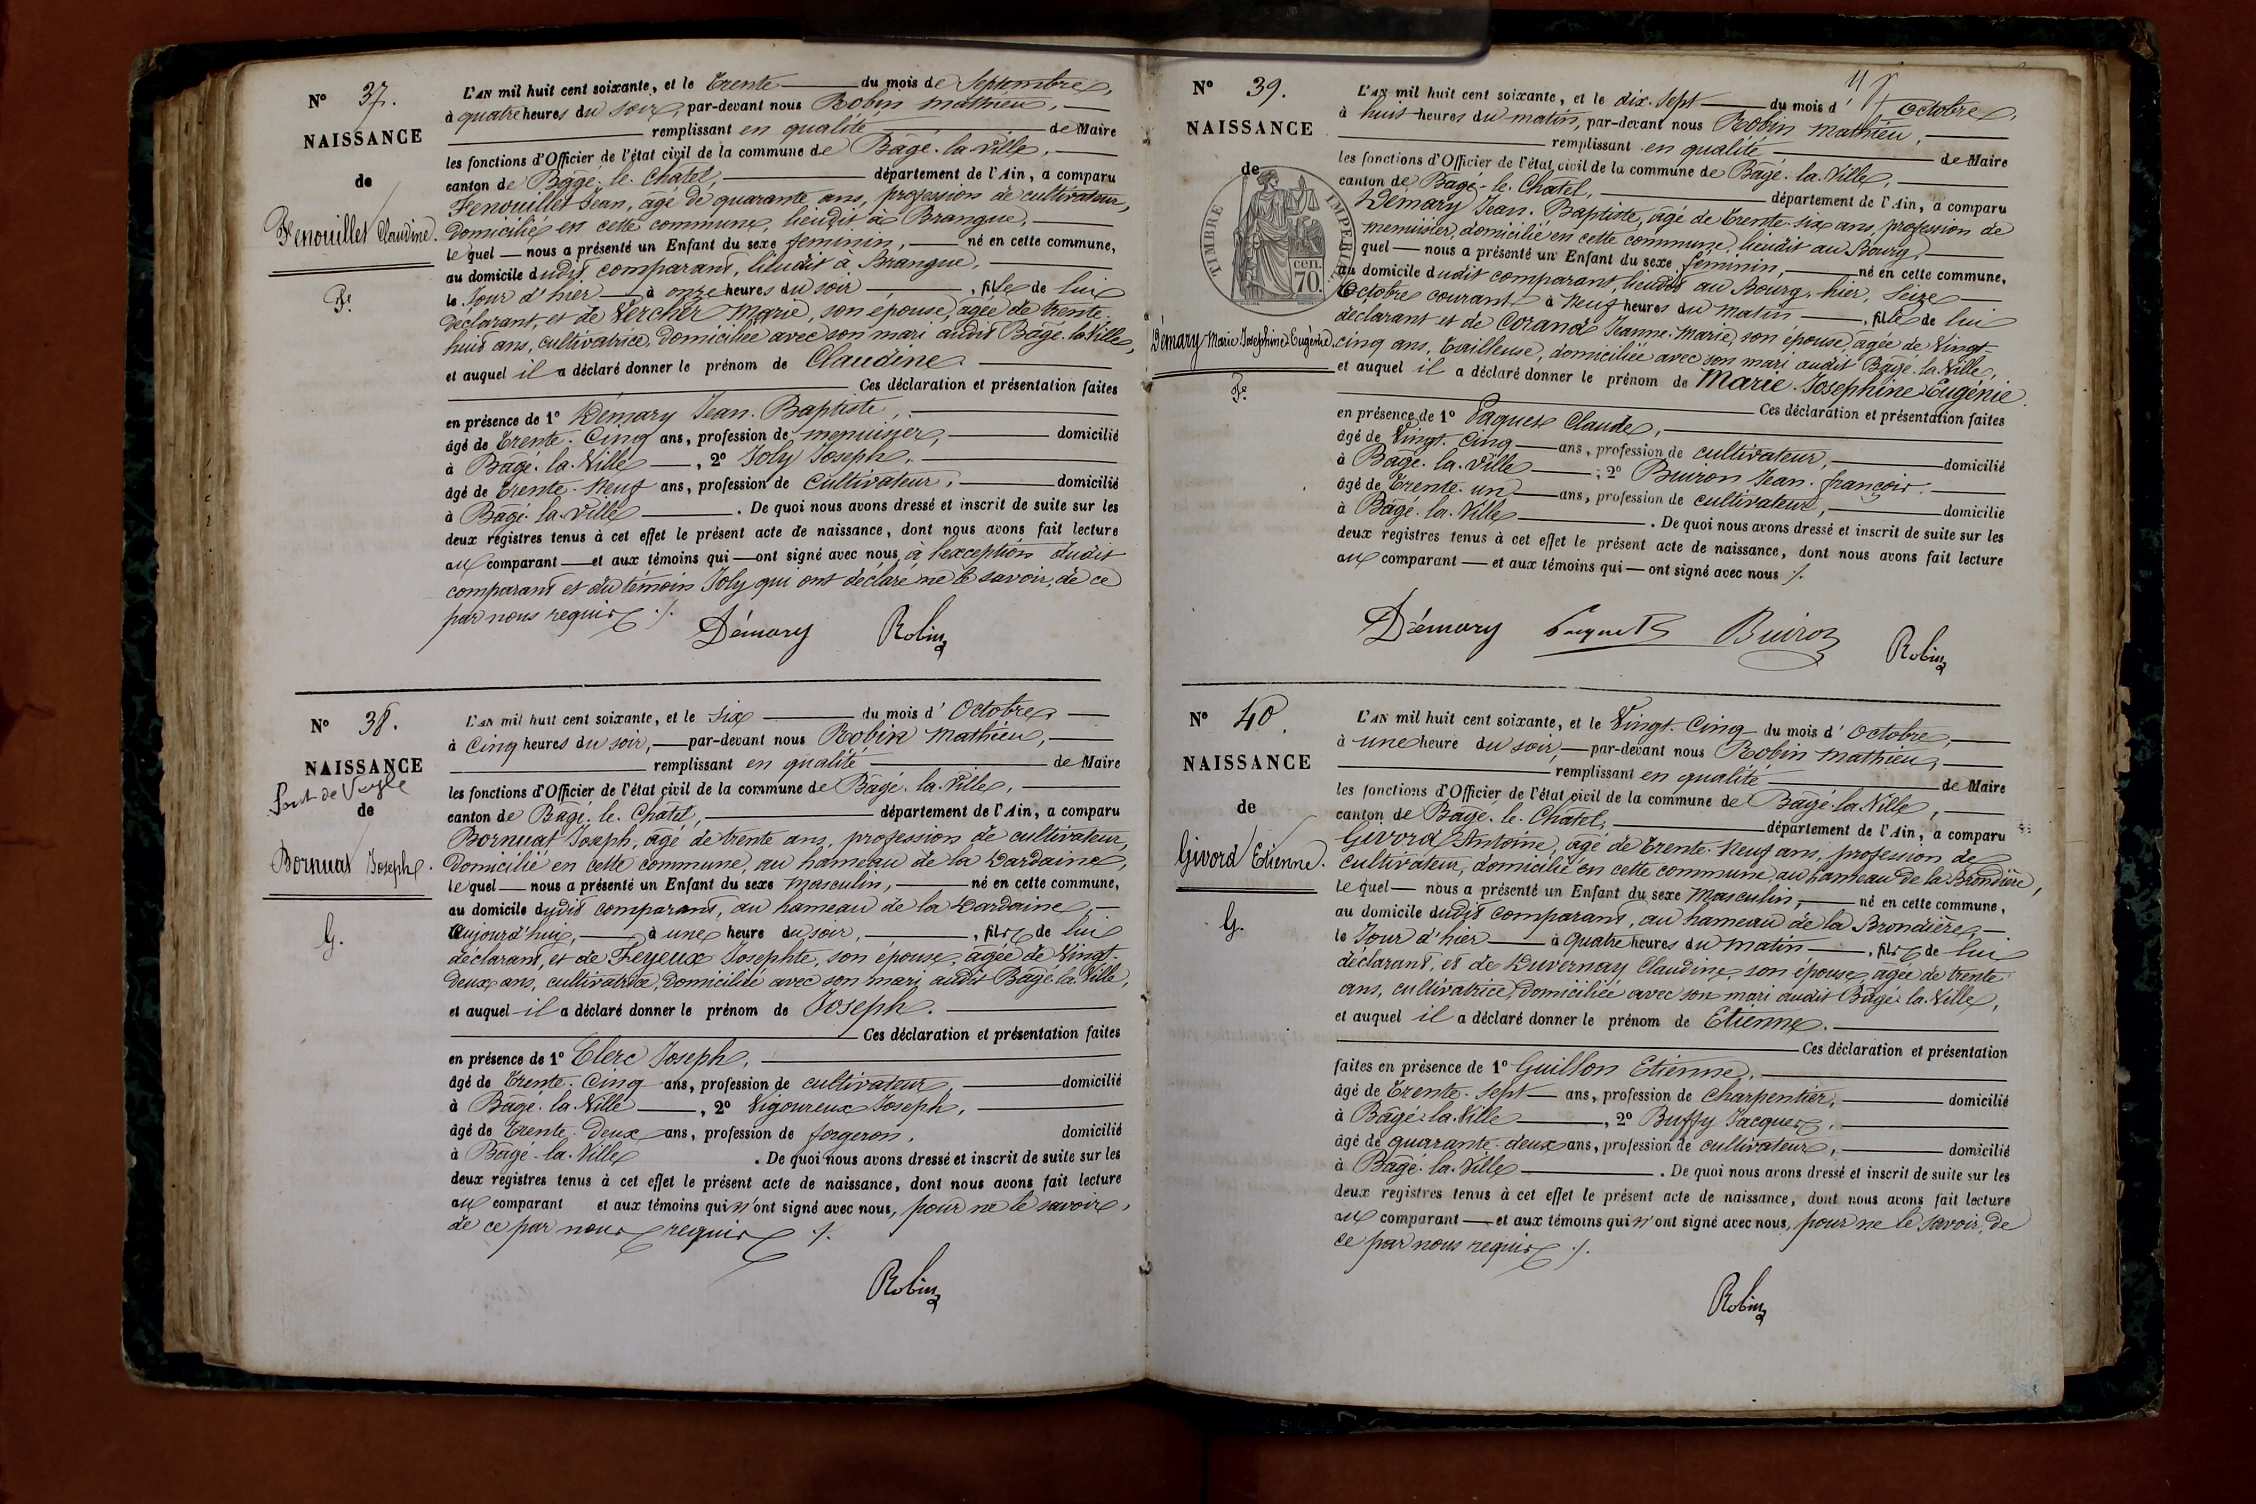 N° 37.
NAISSANCE
de
Fenouillet Claudine.
F.
L'AN mil huit cent soixante, et le Trente du mois de Septembre,
à quatre heures du soir, par-devant nous Robin Mathieu,
remplissant en qualité de Maire
les fonctions d'Officier de l'état civil de la commune de Bâgé-la-Ville,
canton de Bâgé-le-Châtel, département de l'Ain, a comparu
Fenouillet Jean, âgé de quarante ans, profession de cultivateur,
domicilié en cette commune, lieudit à Brangue,
lequel nous a présenté un Enfant du sexe féminin, né en cette commune,
au domicile dudit comparant, lieudit à Brangue,
le Jour d'hier à onze heures du soir, fille de lui
déclarant, et de Vercher Marie, son épouse, âgée de trente-
huit ans, cultivatrice, domiciliée avec son mari audit Bâgé-la-Ville,
et auquel il a déclaré donner le prénom de Claudine.
Ces déclaration et présentation faites
en présence de 1° Démary Jean-Baptiste,
âgé de Trente-Cinq ans, profession de menuisier, domicilié
à Bâgé-la-Ville, 2° Joly Joseph,
âgé de Trente-Neuf ans, profession de Cultivateur, domicilié
à Bâgé-la-Ville. De quoi nous avons dressé et inscrit de suite sur les
deux registres tenus à cet effet le présent acte de naissance, dont nous avons fait lecture
au comparant et aux témoins qui ont signé avec nous, à l'exception dudit
comparant et du témoin Joly qui ont déclaré ne le savoir, de ce
par nous requis ./.
Démary Robin
N° 38.
NAISSANCE
Pont de Veyle
de
Bornuat Joseph.
G.
L'AN mil huit cent soixante, et le six du mois d'Octobre,
à Cinq heures du soir, par-devant nous Robin Mathieu,
remplissant en qualité de Maire
les fonctions d'Officier de l'état civil de la commune de Bâgé-la-Ville,
canton de Bâgé-le-Châtel, département de l'Ain, a comparu
Bornuat Joseph, âgé de trente ans, profession de cultivateur,
domicilié en cette commune, au hameau de la Dardaine,
lequel nous a présenté un Enfant du sexe masculin, né en cette commune,
au domicile dudit comparant, au hameau de la Dardaine,
aujourd'hui, à une heure du soir, fils de lui
déclarant, et de Feyeux Josephte, son épouse, âgée de Vingt-
deux ans, cultivatrice, domiciliée avec son mari audit Bâgé-la-Ville,
et auquel il a déclaré donner le prénom de Joseph.
Ces déclaration et présentation faites
en présence de 1° Clerc Joseph,
âgé de Trente-Cinq ans, profession de cultivateur, domicilié
à Bâgé-la-Ville, 2° Vigoureux Joseph,
âgé de Trente-Deux ans, profession de forgeron, domicilié
à Bâgé-la-Ville. De quoi nous avons dressé et inscrit de suite sur les
deux registres tenus à cet effet le présent acte de naissance, dont nous avons fait lecture
au comparant et aux témoins qui n'ont signé avec nous, pour ne le savoir,
de ce par nous requis ./.
Robin
N° 39.
NAISSANCE
de
TIMBRE IMPERIAL
70 cen.
Démary Marie Josephine Eugénie.
F.
L'AN mil huit cent soixante, et le dix-sept du mois d'Octobre,
à huit heures du matin, par-devant nous Robin Mathieu,
remplissant en qualité de Maire
les fonctions d'Officier de l'état civil de la commune de Bâgé-la-Ville,
canton de Bâgé-le-Châtel, département de l'Ain, a comparu
Démary Jean-Baptiste, âgé de Trente-six ans, profession de
menuisier, domicilié en cette commune, lieudit au Bourg,
quel nous a présenté un Enfant du sexe féminin, né en cette commune,
au domicile dudit comparant, lieudit au Bourg, hier, Seize
Octobre courant à Neuf heures du matin, fille de lui
déclarant et de Corand Jeanne-Marie, son épouse, âgée de Vingt-
cinq ans, Tailleuse, domiciliée avec son mari audit Bâgé-la-Ville,
et auquel il a déclaré donner le prénom de Marie-Josephine Eugénie.
Ces déclaration et présentation faites
en présence de 1° Paques Claude,
âgé de Vingt-Cinq ans, profession de cultivateur, domicilié
à Bâgé-la-Ville, 2° Buiron Jean-françois.
âgé de Trente-un ans, profession de cultivateur, domicilié
à Bâgé-la-Ville. De quoi nous avons dressé et inscrit de suite sur les
deux registres tenus à cet effet le présent acte de naissance, dont nous avons fait lecture
au comparant et aux témoins qui ont signé avec nous ./.
Démary Buiron Robin
N° 40.
NAISSANCE
de
Givord Etienne.
G.
L'AN mil huit cent soixante, et le Vingt-Cinq du mois d'Octobre,
à une heure du soir, par-devant nous Robin Mathieu,
remplissant en qualité de Maire
les fonctions d'Officier de l'état civil de la commune de Bâgé-la-Ville,
canton de Bâgé-le-Châtel, département de l'Ain, a comparu
Givord Antoine, âgé de Trente-Neuf ans, profession de
cultivateur, domicilié en cette commune au hameau de la Brondière,
lequel nous a présenté un Enfant du sexe Masculin, né en cette commune,
au domicile dudit comparant, au hameau de la Brondière,
le Jour d'hier à Quatre heures du matin, fils de lui
déclarant, et de Duvernay Claudine, son épouse, âgée de trente
ans, cultivatrice, domiciliée avec son mari audit Bâgé-la-Ville,
et auquel il a déclaré donner le prénom de Etienne.
Ces déclaration et présentation
faites en présence de 1° Guillon Etienne,
âgé de Trente-sept ans, profession de Charpentier, domicilié
à Bâgé-la-Ville, 2° Buffy Jacques,
âgé de quarante-deux ans, profession de cultivateur, domicilié
à Bâgé-la-Ville. De quoi nous avons dressé et inscrit de suite sur les
deux registres tenus à cet effet le présent acte de naissance, dont nous avons fait lecture
au comparant et aux témoins qui n'ont signé avec nous, pour ne le savoir, de
ce par nous requis ./.
Robin